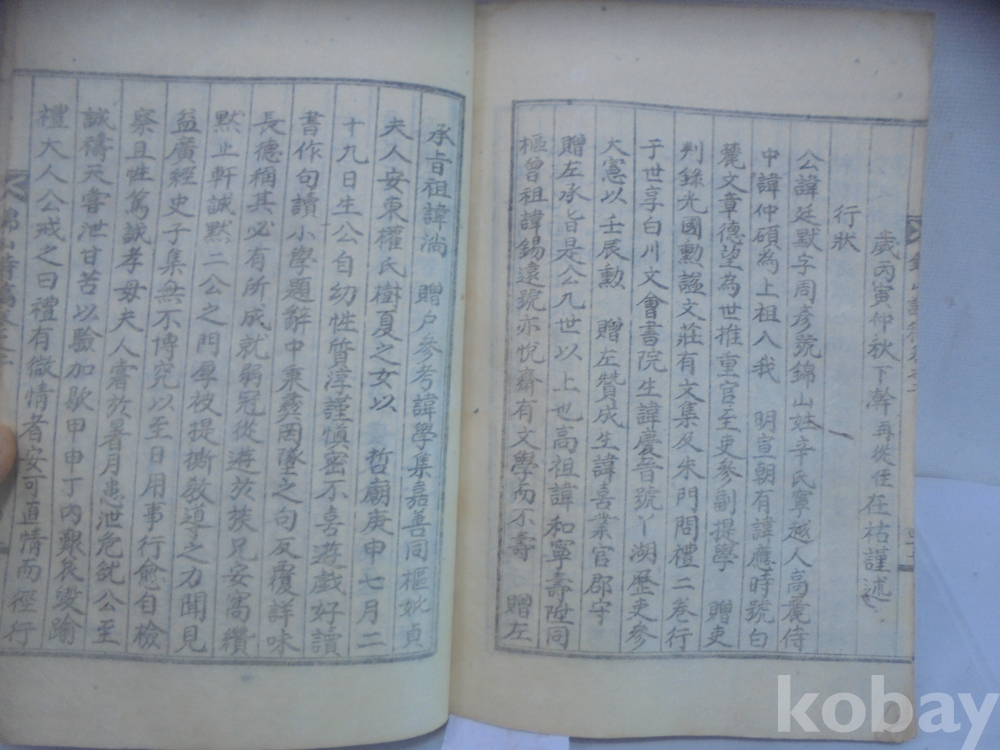 歲丙寅仲秋下幹再從侄在祐謹述
行狀
公諱廷默字周彥號錦山姓辛氏寧越人高麗侍
中諱仲碩為上祖入我 明宣朝有諱應時號白
麓文章德望為世推重官至吏參副提學 贈吏
判錄光國勳諡文莊有文集及朱門問禮二卷行
于世享白川文會書院生諱慶晉號丫湖歷吏參
大憲以壬辰勳 贈左贊成生諱喜業官郡守
贈左承旨是公九世以上也高祖諱和寧壽陞同
樞曾祖諱錫遠號亦悅齋有文學而不壽 贈左
承旨祖諱尚 贈戶參考諱學集嘉善同樞妣貞
夫人安東權氏樹夏之女以 哲廟庚申七月二
十九日生公自幼性質淳謹慎密不喜遊戲好讀
書作句讀小學題辭中秉彝罔墜之句反覆詳味
長德稱其必有所成就弱冠從遊於族兄安窩纘
默止軒誠默二公之門厚被提撕敎導之力聞見
益廣經史子集無不博究以至日用事行愈自檢
察且性篤誠孝母夫人嘗於暑月患泄危欲公至
誠禱天嘗泄甘苦以驗加歇甲申丁內艱哀毀踰
禮大人公戒之曰禮有微情者安可直情而徑行
錦山詩稿卷之二
kobay